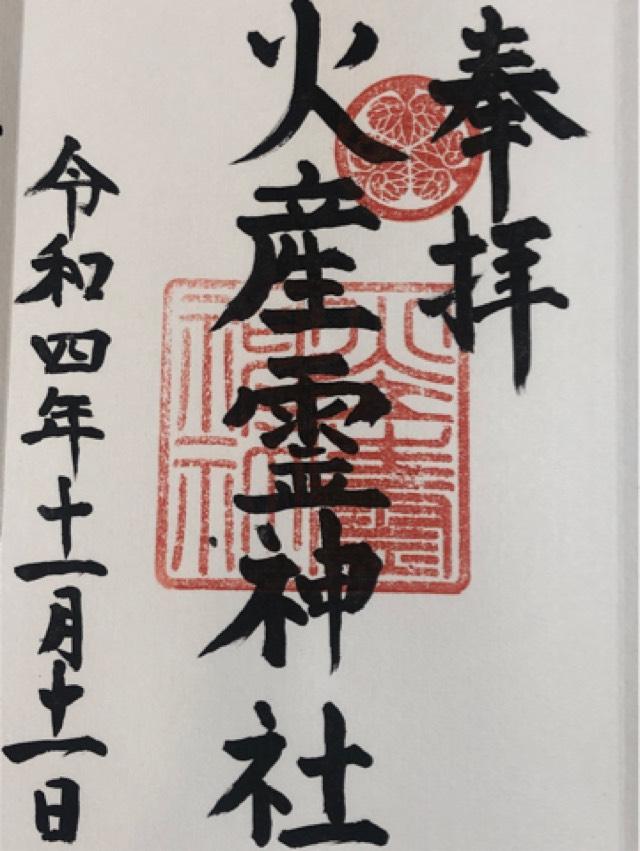 奉拝
火産霊神社
令和四年十一月十一日